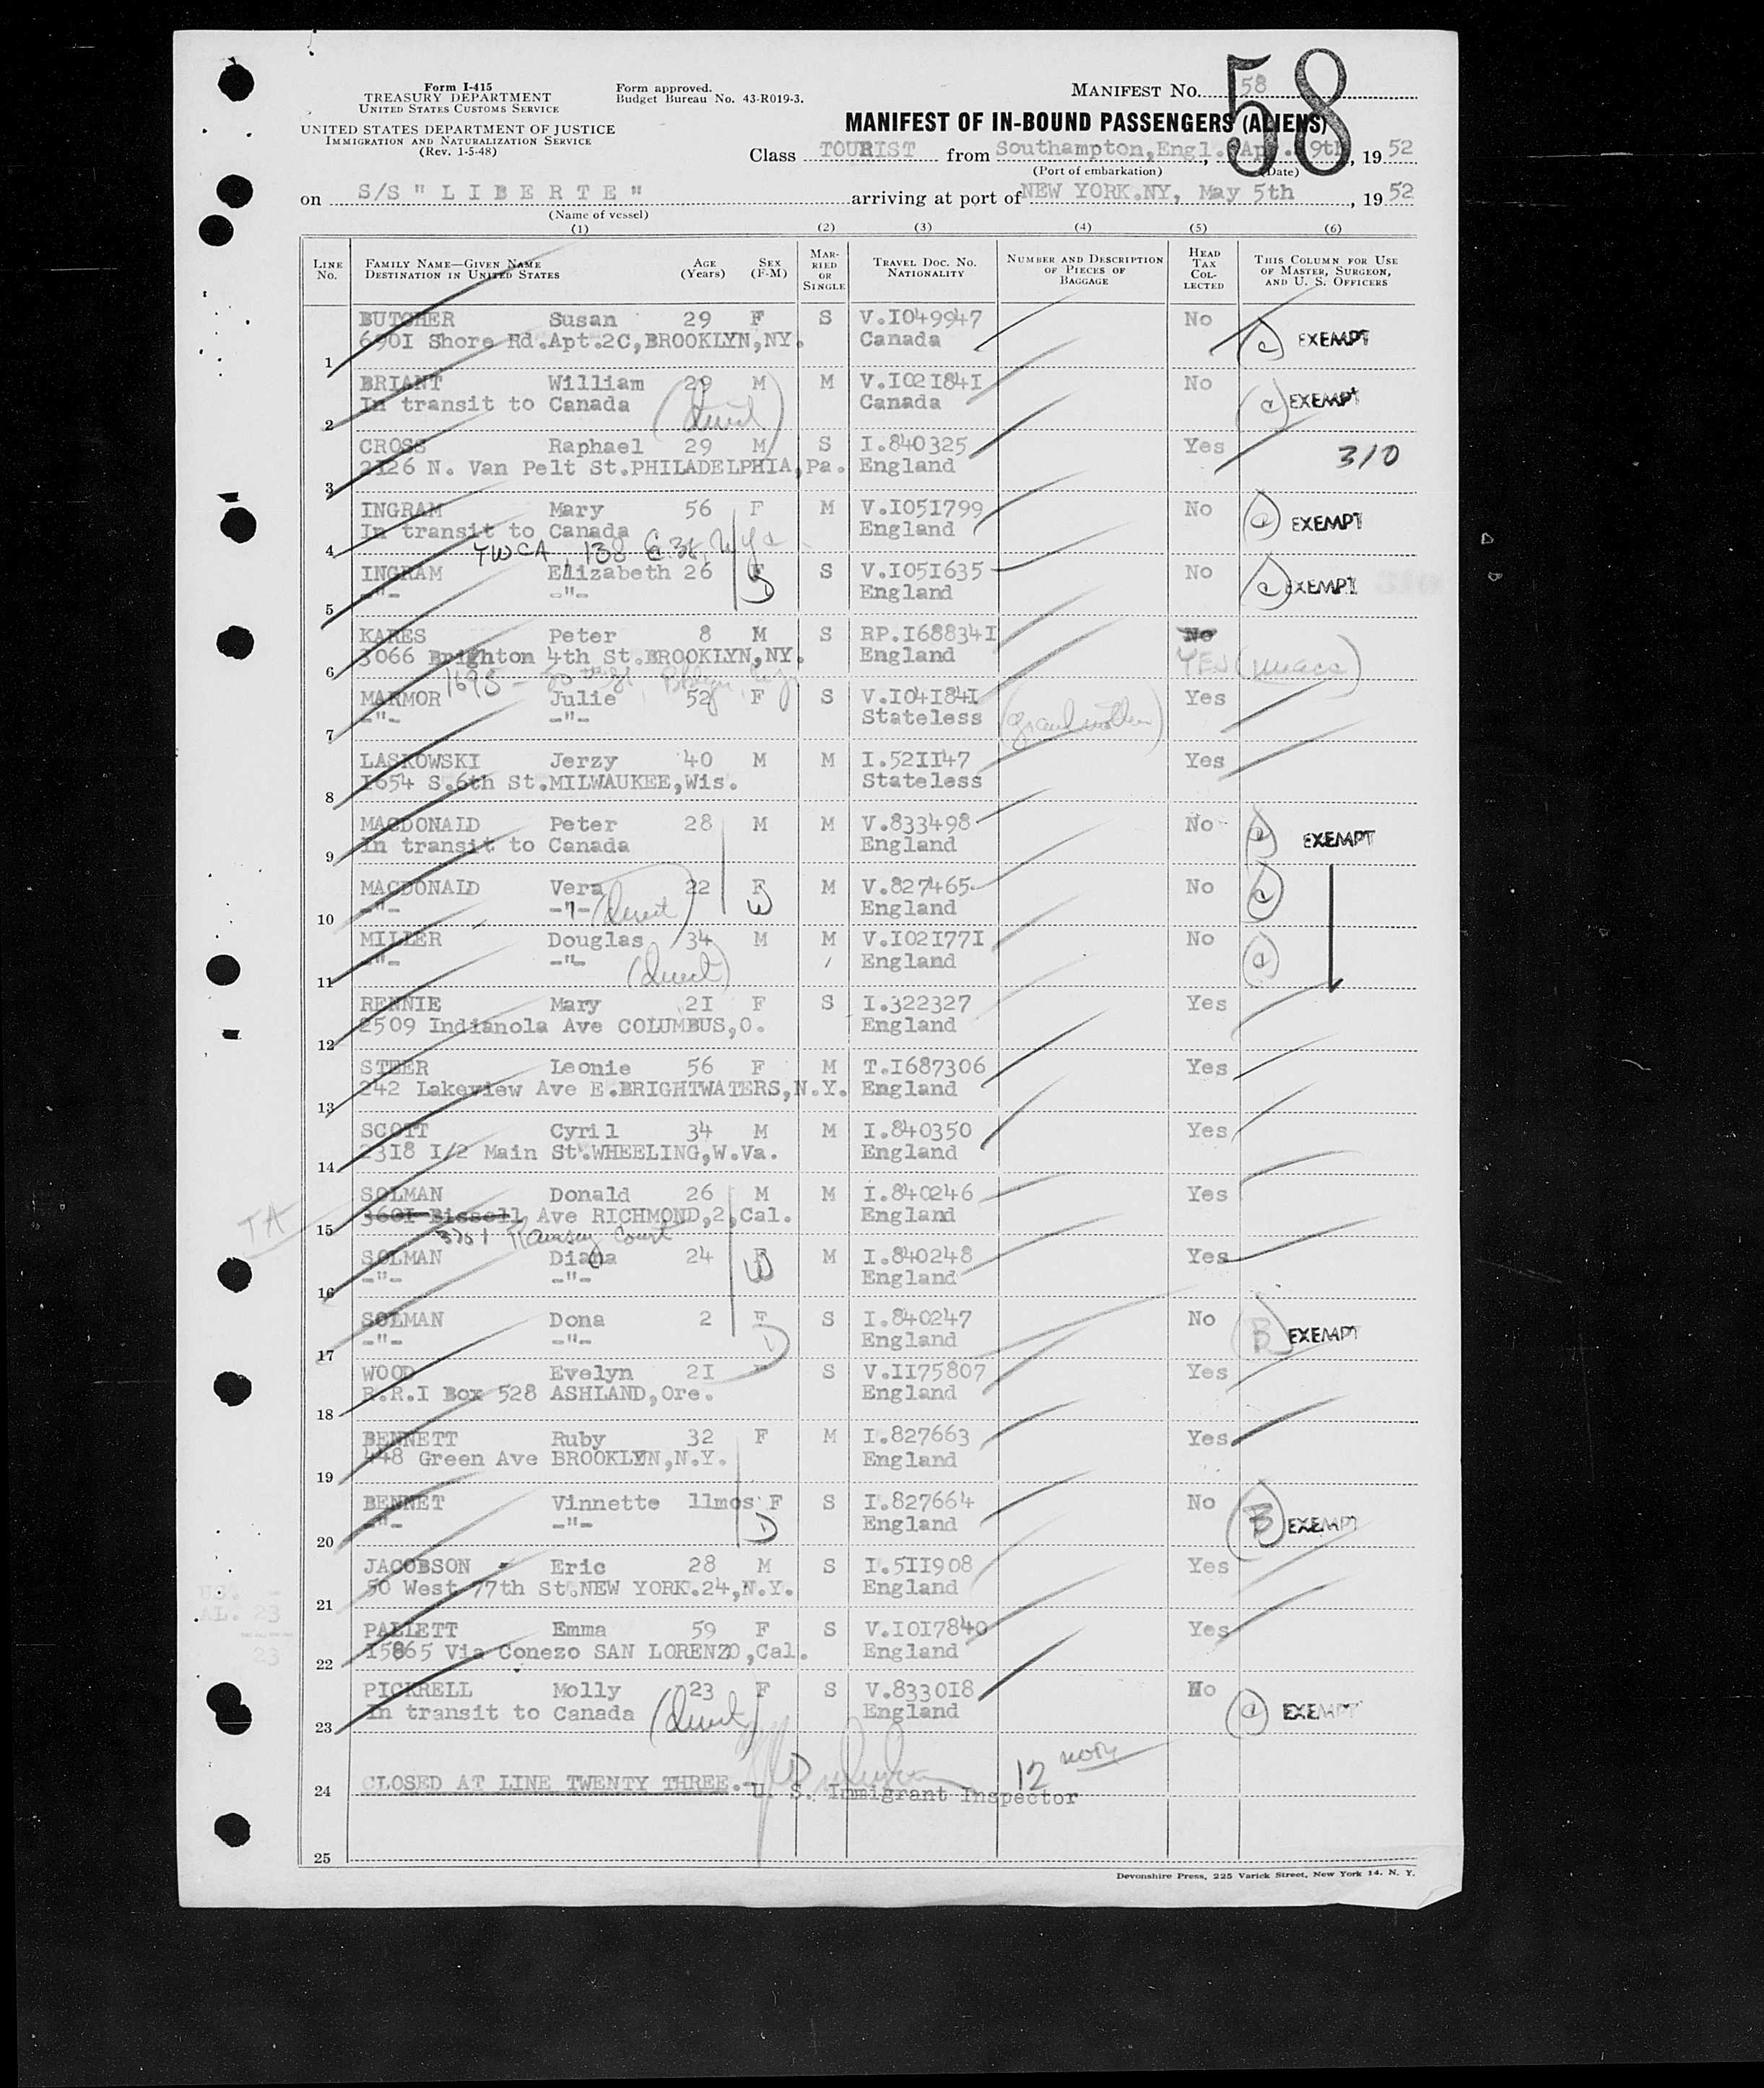 Form I-415
TREASURY DEPARTMENT
UNITED STATES CUSTOMS SERVICE
UNITED STATES DEPARTMENT OF JUSTICE
IMMIGRATION AND NATURALIZATION SERVICE
(Rev. 1-5-48)
Form approved.
Budget Bureau No. 43-R019-3.
MANIFEST No. 58
58
MANIFEST OF IN-BOUND PASSENGERS (ALIENS)
Class TOURIST from Southampton,Engl., 9th, 19 52
(Port of embarkation) (Date)
on S/S "L I B E R T E" arriving at port of NEW YORK.NY, May 5th, 19 52
(Name of vessel)
(1) (2) (3) (4) (5) (6)
LINE No. FAMILY NAME—GIVEN NAME DESTINATION IN UNITED STATES AGE (Years) SEX (F-M) MARRIED OR SINGLE TRAVEL DOC. NO. NATIONALITY NUMBER AND DESCRIPTION OF PIECES OF BAGGAGE HEAD TAX COLLECTED THIS COLUMN FOR USE OF MASTER, SURGEON, AND U. S. OFFICERS
BUTCHER Susan 29 F S V.I049947 No
6901 Shore Rd.Apt.2C,BROOKLYN,NY. Canada EXEMPT
1
BRIANT William 29 M M V.I02I84I No
In transit to Canada (direct) Canada EXEMPT
2
CROSS Raphael 29 M S I.840325 Yes 310
2126 N. Van Pelt St.PHILADELPHIA,Pa. England
3
INGRAM Mary 56 F M V.I05I799 No
In transit to Canada England EXEMPT
4 YWCA, 138 E. 38,
INGRAM Elizabeth 26 F S V.I05I635 No
-"- -"- D England EXEMPT
5
KARES Peter 8 M S RP.I68834I No
3066 Brighton 4th St.BROOKLYN,NY. England YES
6 1698 - 50th St, Bklyn
MARMOR Julie 52 F S V.I04I84I Yes
-"- -"- Stateless (grandmother)
7
LASKOWSKI Jerzy 40 M M I.52II47 Yes
I654 S.6th St.MILWAUKEE,Wis. Stateless
8
MACDONALD Peter 28 M M V.833498 No
In transit to Canada England EXEMPT
9
MACDONALD Vera 22 F M V.827465 No
-"- -"- (direct) W England
10
MILLER Douglas 34 M M V.I02I77I No
-"- -"- (direct) England
11
RENNIE Mary 2I F S I.322327 Yes
2509 Indianola Ave COLUMBUS,O. England
12
STEER Leonie 56 F M T.I687306 Yes
242 Lakeview Ave E.BRIGHTWATERS,N.Y. England
13
SCOTT Cyril 34 M M I.840350 Yes
2318 I/2 Main St.WHEELING,W.Va. England
14
SOLMAN Donald 26 M M I.840246 Yes
360I Bissell Ave RICHMOND,2,Cal. England
TA
15 Ramsey Court
SOLMAN Diana 24 F M I.840248 Yes
-"- -"- W England
16
SOLMAN Dona 2 F S I.840247 No
-"- -"- D England B EXEMPT
17
WOOD Evelyn 2I S V.II75807 Yes
R.R.I Box 528 ASHLAND,Ore. England
18
BENNETT Ruby 32 F M I.827663 Yes
448 Green Ave BROOKLYN,N.Y. England
19
BENNET Vinnette 11mos F S I.827664 No
-"- -"- D England B EXEMPT
20
JACOBSON Eric 28 M S I.5II908 Yes
50 West 77th St.NEW YORK.24,N.Y. England
21
US. -
AL. 23
23
PALLETT Emma 59 F S V.I0I7840 Yes
I5865 Via Conezo SAN LORENZO,Cal. England
22
PICKRELL Molly 23 F S V.833018 No
In transit to Canada (direct) England EXEMPT
23
12
24 CLOSED AT LINE TWENTY THREE.- U. S. Immigrant Inspector
25
Devonshire Press, 225 Varick Street, New York 14, N. Y.